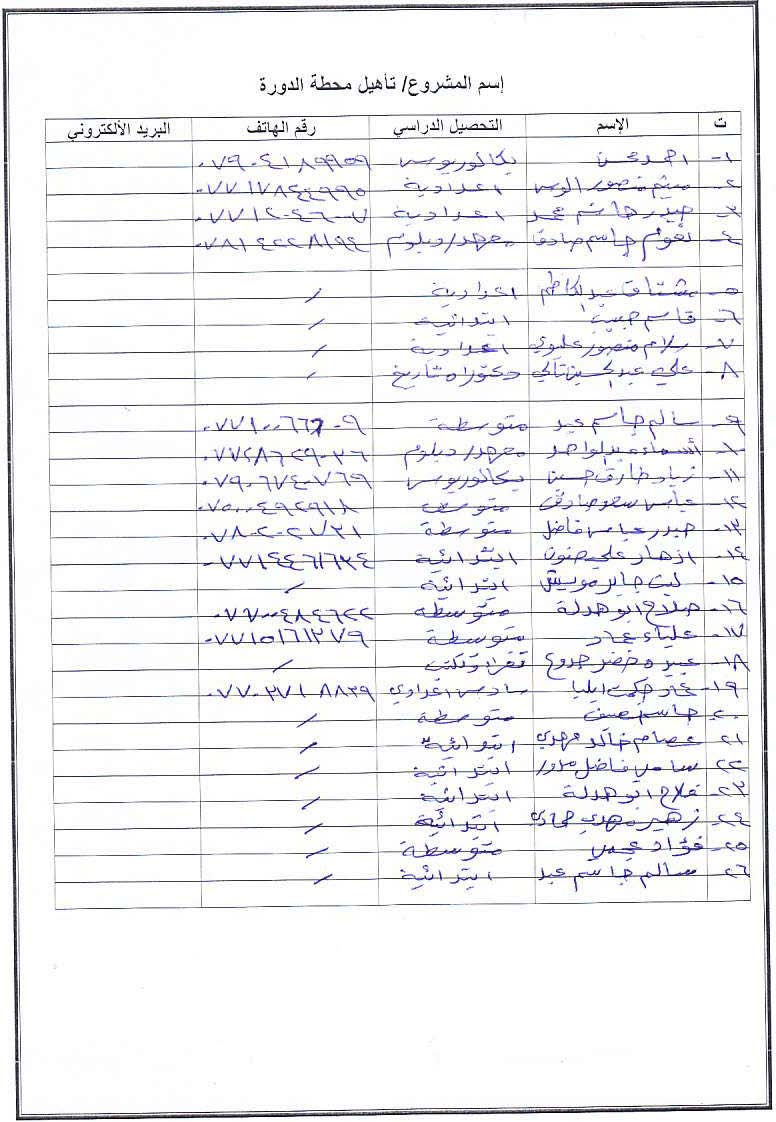 إسم المشروع/ تأهيل محطة الدورة
ت الإسم التحصيل الدراسي رقم الهاتف البريد الألكتروني
١- احمد محسن بكالوريوس ٠٧٩٠٤١٨٩٩٥٩
٢- ميثم منصور اعدادية ٠٧٧١٧٨٤٤٦٩٥
٣- حيدر هاشم محمد اعدادية ٠٧٧١٢٠٤٦٠٠٧
٤- جاسم صادق معهد/دبلوم ٠٧٨١٤٢٢٨١٩٤
٥- مشتاق عبد الكاظم اعدادية /
٦- قاسم حبيب ابتدائية /
٧- سلام منصور عليوي اعدادية /
٨- علي عبد الحسين تالي دكتوراه تاريخ /
٩- سالم جاسم عبد متوسطة ٠٧٧١٠٠٦٦٢٠٩
١٠- أسماء عبد الواحد معهد/دبلوم ٠٧٧٢٨٦٢٩٠٣٦
١١- زياد طارق حسين بكالوريوس ٠٧٩٠٦٧٤٠٧٦٩
١٢- عباس سعد صادق متوسطة ٠٧٥٠٠٤٩٢٩١٨
١٣- حيدر عباس فاضل متوسطة ٠٧٨٠٢٠٢١٧٣١
١٤- ازهار علي ابتدائية ٠٧٧١٤٤٦١٦٣٤
١٥- ليث جابر ابتدائية /
١٦- صلاح ابو هدلة متوسطة ٠٧٧٠٠٤٨٤٦٢٢
١٧- علياء عماد متوسطة ٠٧٧١٥١٦١٢٧٩
١٨- خضر جدوع تقرأ وتكتب /
١٩- حكمت ايليا سادس اعدادي ٠٧٧٠٢٧١٨٨٣٩
٢٠- جاسم متوسطة /
٢١- عصام خالد مهدي ابتدائية /
٢٢- سامر فاضل ابتدائية /
٢٣- فلاح ابو هدلة ابتدائية /
٢٤- زهير مهدي ابتدائية /
٢٥- فؤاد متوسطة /
٢٦- سالم جاسم عبد ابتدائية /